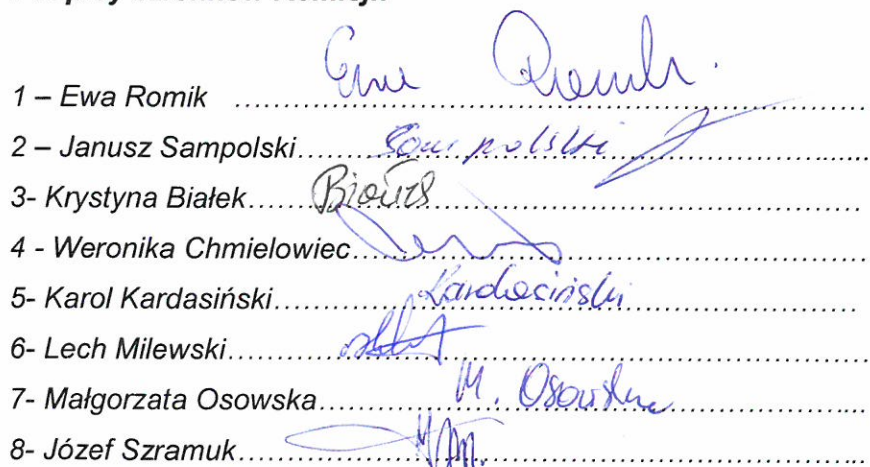 1 – Ewa Romik ........ Ewa Romik
2 – Janusz Sampolski ........ Sampolski
3- Krystyna Białek ........ Białek
4 - Weronika Chmielowiec ........
5- Karol Kardasiński ........ Kardasiński
6- Lech Milewski ........
7- Małgorzata Osowska ........ M. Osowska
8- Józef Szramuk ........